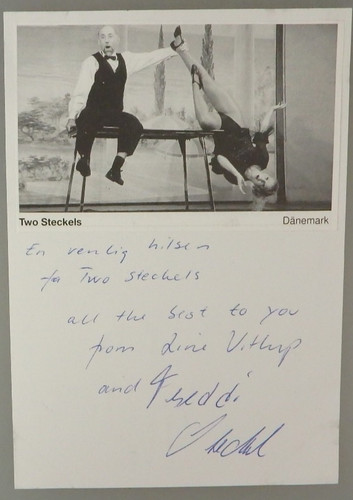 Two Steckels Dänemark
En venlig hilsen
fra Two Steckels
all the best to you
from Line Vittrup
and Freddi
Steckel